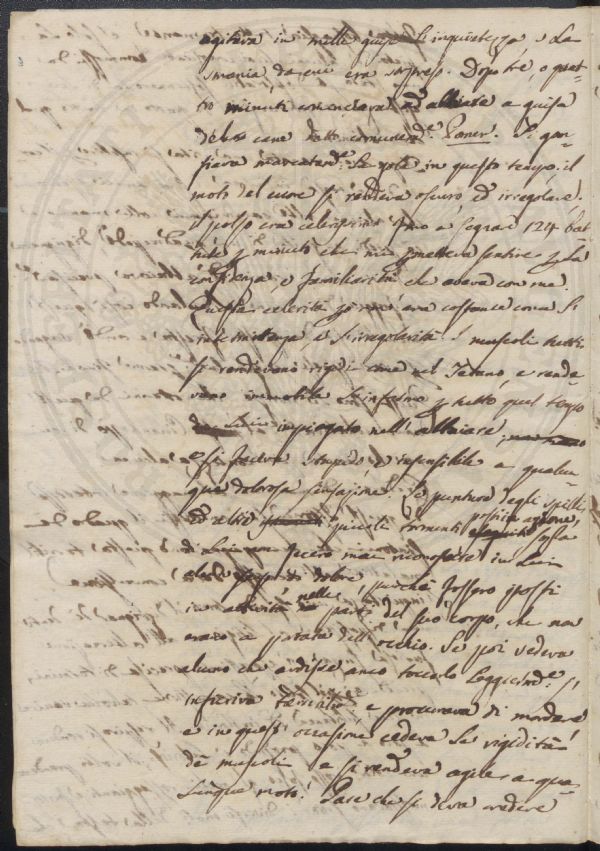 agitava in mille guise l'inquietezza, e la
smania da cui era sorpreso. Dopo tre, o quat-
tro minuti cominciava ad abbaiare a guisa
del cane detto comunem.e Laner. Si gon-
fiava marcatam.e la gola in questo tempo: il
moto del cuore si rendeva oscuro, ed irregolare;
il polso era celerissimo fino a segnar 124 bat-
tute p minuto che mi permetteva sentire p la
confidenza, e familiarità che aveva con me.
Questa celerità però non era costante come l'
intermittenza e l'irregolarità. I muscoli tutti
si rendevano rigidi come nel Tetano, e rende-
vano immobile l'infermo p tutto quel tempo
impiegato nell'abbaiare,
e si faceva stupido, e insensibile a qualun-
que dolorosa sensazione. Le punture degli spilli,
ed altri questi tormenti
di fecero mai riconoscere in lui
di dolore, purché fossero posti
in attività nelle parti del suo corpo, che non
erano a portata dell'occhio. Se poi vedeva
alcuno che ardisse anco toccarlo leggierm.e s'
inferiva, e procurava di mordere
e in quest'occasione cedeva la rigidità
de' muscoli e si rendeva agile a qua-
lunque moto. Pare che si deva credere